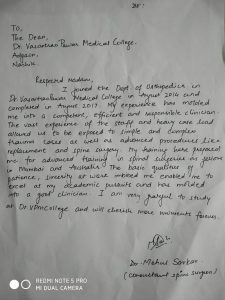 To,
The Dean,
Dr. Vasantrao Pawar Medical College.
Adgaon,
Nashik
Respected Madam,
I joined the Dept of Orthopedics in
Dr. Vasantrao Pawar Medical College in August 2014 and
completed in August 2017. My experience has molded
me into a competent, efficient and responsible clinician.
The vast experience of the study and heavy case load
allowed us to be exposed to simple and complex
trauma cases as well as advanced procedures like
replacement and spine surgery. My training here prepared
me for advanced training in spinal surgeries as
in Mumbai and Australia. The basic qualities of
patience, sincerity at work imbibed me enabled me to
excel at my academic pursuits and has molded
into a good clinician. I am very grateful to study
at Dr. VPMCollege and will cherish these moments forever.
Dr. Mehul Sarkar
(consultant spine surgeon)
REDMI NOTE 5 PRO
MI DUAL CAMERA